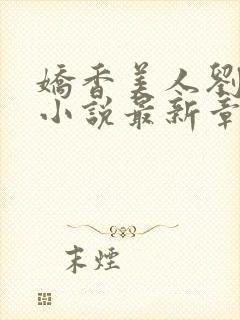 嬌香美人劉
小說最新章
末煙